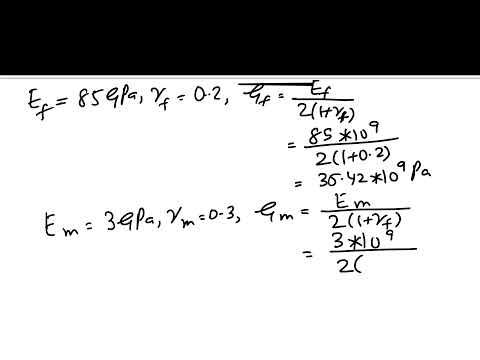 E_f = 85 GPa, γ_f = 0.2, G_f = E_f / 2(1+γ_f)
= 85*10^9 / 2(1+0.2)
= 35.42*10^9 Pa
E_m = 3 GPa, γ_m = 0.3, G_m = E_m / 2(1+γ_f)
= 3*10^9 / 2(